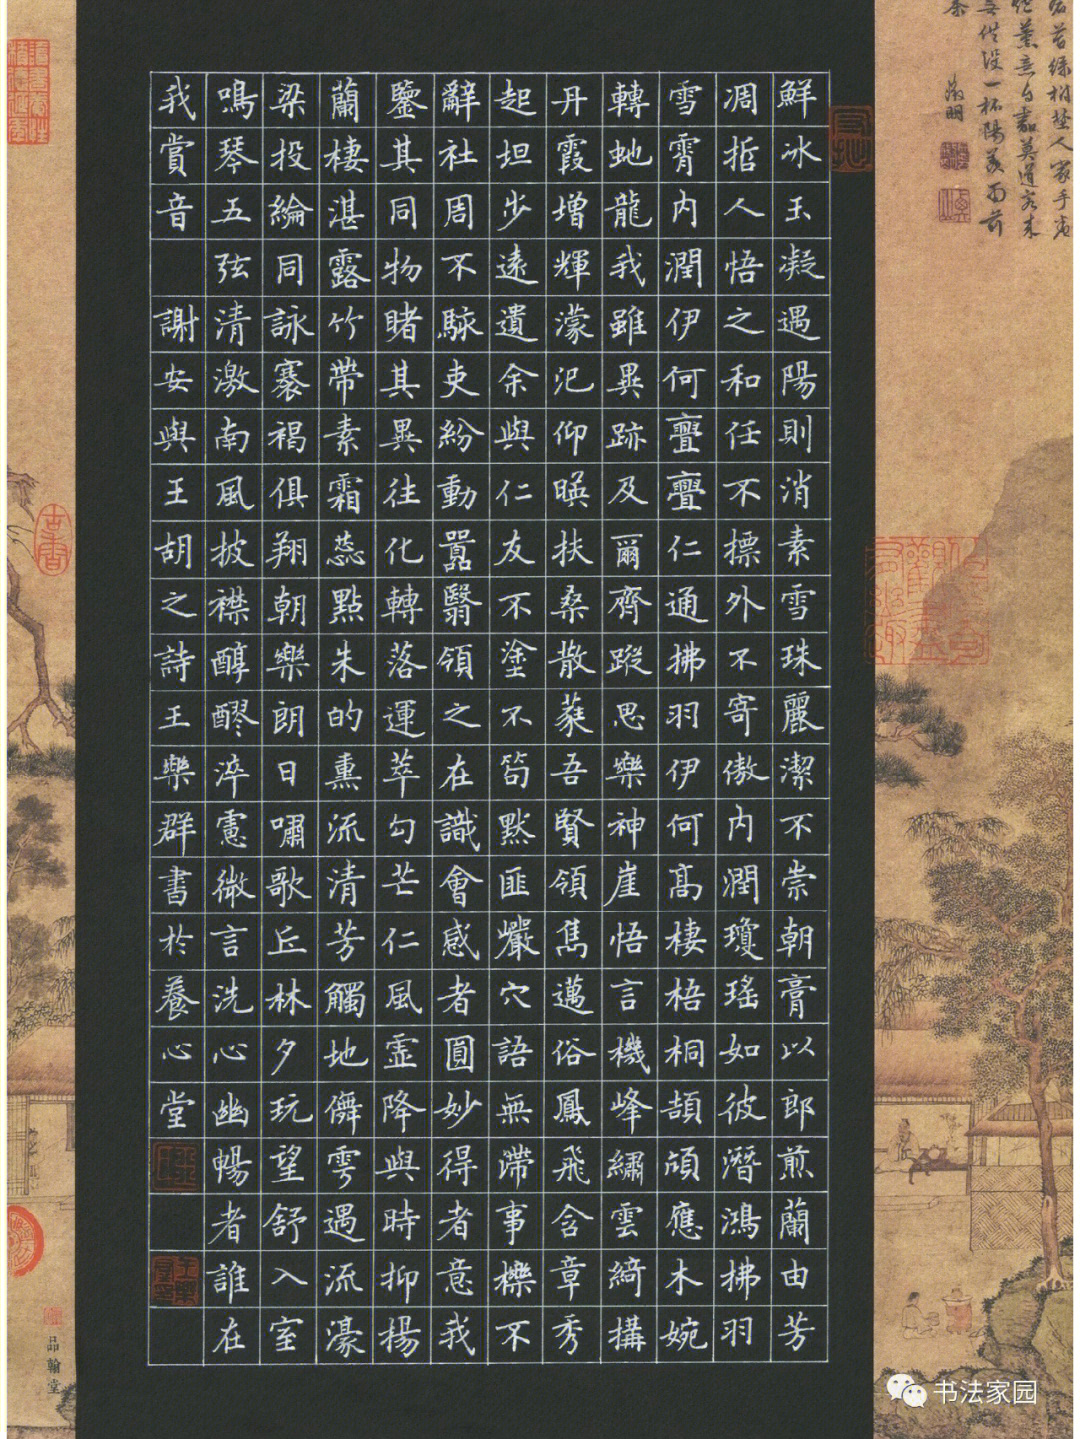 鮮冰玉凝遇陽則消素雪珠麗潔不崇朝膏以郎煎蘭由芳
凋哲人悟之和任不摽外不寄傲內潤瓊瑤如彼潛鴻拂羽
雪霄內潤伊何亹亹仁通拂羽伊何高棲梧桐頡頏應木婉
轉虵龍我雖異跡及爾齊蹤思樂神崖悟言機峰繡雲綺搆
丹霞增輝濛汜仰暎扶桑散蕤吾賢領雋邁俗鳳飛含章秀
起坦步遠遺余與仁友不塗不笱默匪巖穴語無滯事櫟不
辭社周不駭吏紛動囂翳領之在識會感者圓妙得者意我
鑒其同物睹其異往化轉落運萃勾芒仁風霊降與時抑揚
蘭棲湛露竹帶素霜蕊點朱的熏流清芳觸地儛雩遇流濠
梁投綸同詠褰褐俱翔朝樂朗日嘯歌丘林夕玩望舒入室
鳴琴五弦清激南風披襟醇醪淬憲微言洗心幽暢者誰在
我賞音 謝安與王胡之詩王樂群書於養心堂
品翰堂
书法家园